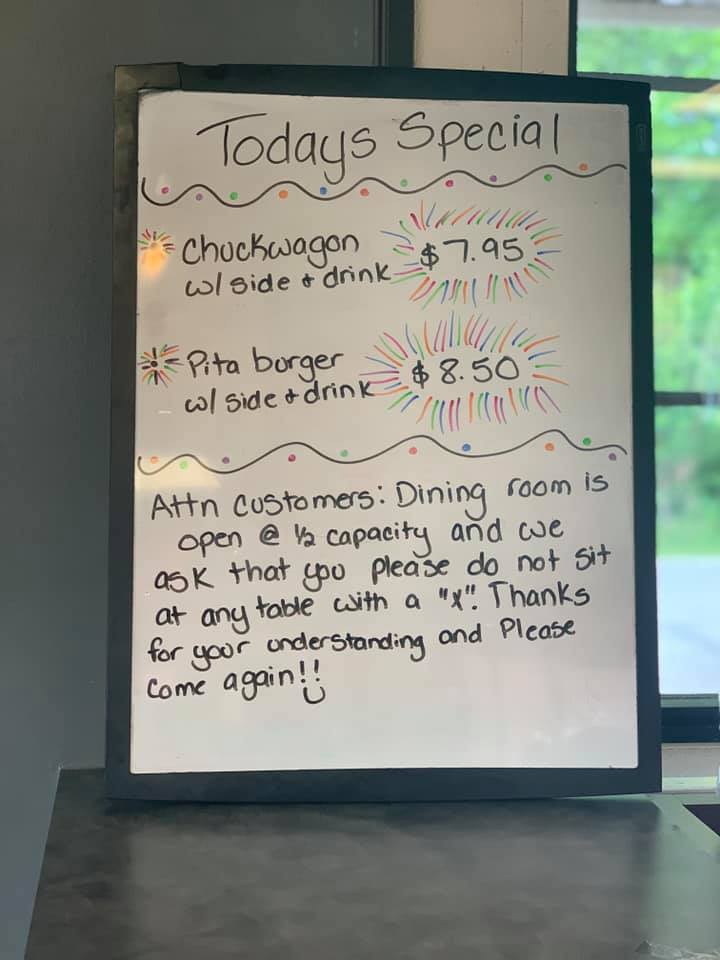 Todays Special
Chuckwagon
w/ side + drink
$7.95
Pita burger
w/ side + drink
$8.50
Attn customers: Dining room is
open @ ½ capacity and we
ask that you please do not sit
at any table with a "X". Thanks
for your understanding and Please
Come again!!